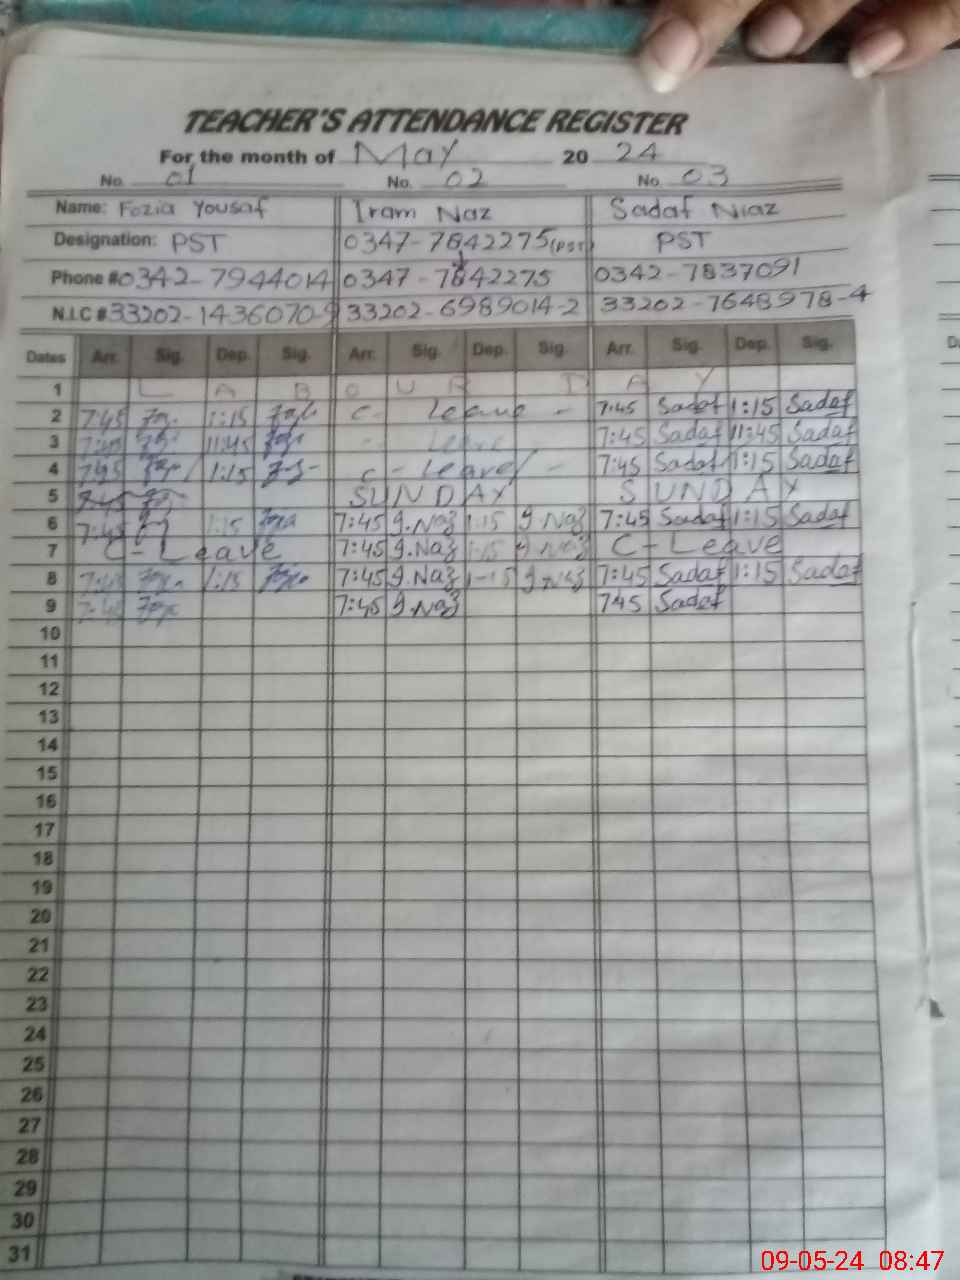 TEACHER'S ATTENDANCE REGISTER
For the month of May 20 24
No. 01 No. 02 No. 03
Name: Fozia Yousaf Iram Naz Sadaf Niaz
Designation: PST 0347-7842275(PST) PST
Phone # 0342-7944014 0347-7842275 0342-7837091
N.I.C # 33202-1436070-9 33202-6989014-2 33202-7648978-4
Dates Arr. Sig. Dep. Sig. Arr. Sig. Dep. Sig. Arr. Sig. Dep. Sig.
1 LABOUR DAY
2 7:45 1:15 C- Leave - 7:45 Sadaf 1:15 Sadaf
3 7:45 11:45 C- Leave 7:45 Sadaf 11:45 Sadaf
4 7:45 1:15 C- Leave - 7:45 Sadaf 1:15 Sadaf
5 7:45 SUNDAY SUNDAY
6 7:45 1:15 7:45 I.Naz 1:15 I.Naz 7:45 Sadaf 1:15 Sadaf
7 C-Leave 7:45 I.Naz 1:15 I.Naz C-Leave
8 7:45 1:15 7:45 I.Naz 1-15 I.Naz 7:45 Sadaf 1:15 Sadaf
9 7:45 7:45 I.Naz 745 Sadaf
10
11
12
13
14
15
16
17
18
19
20
21
22
23
24
25
26
27
28
29
30
31
09-05-24 08:47